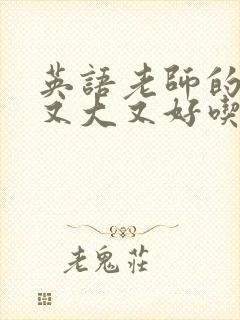 英語老師的
又大又好喫
老鬼莊